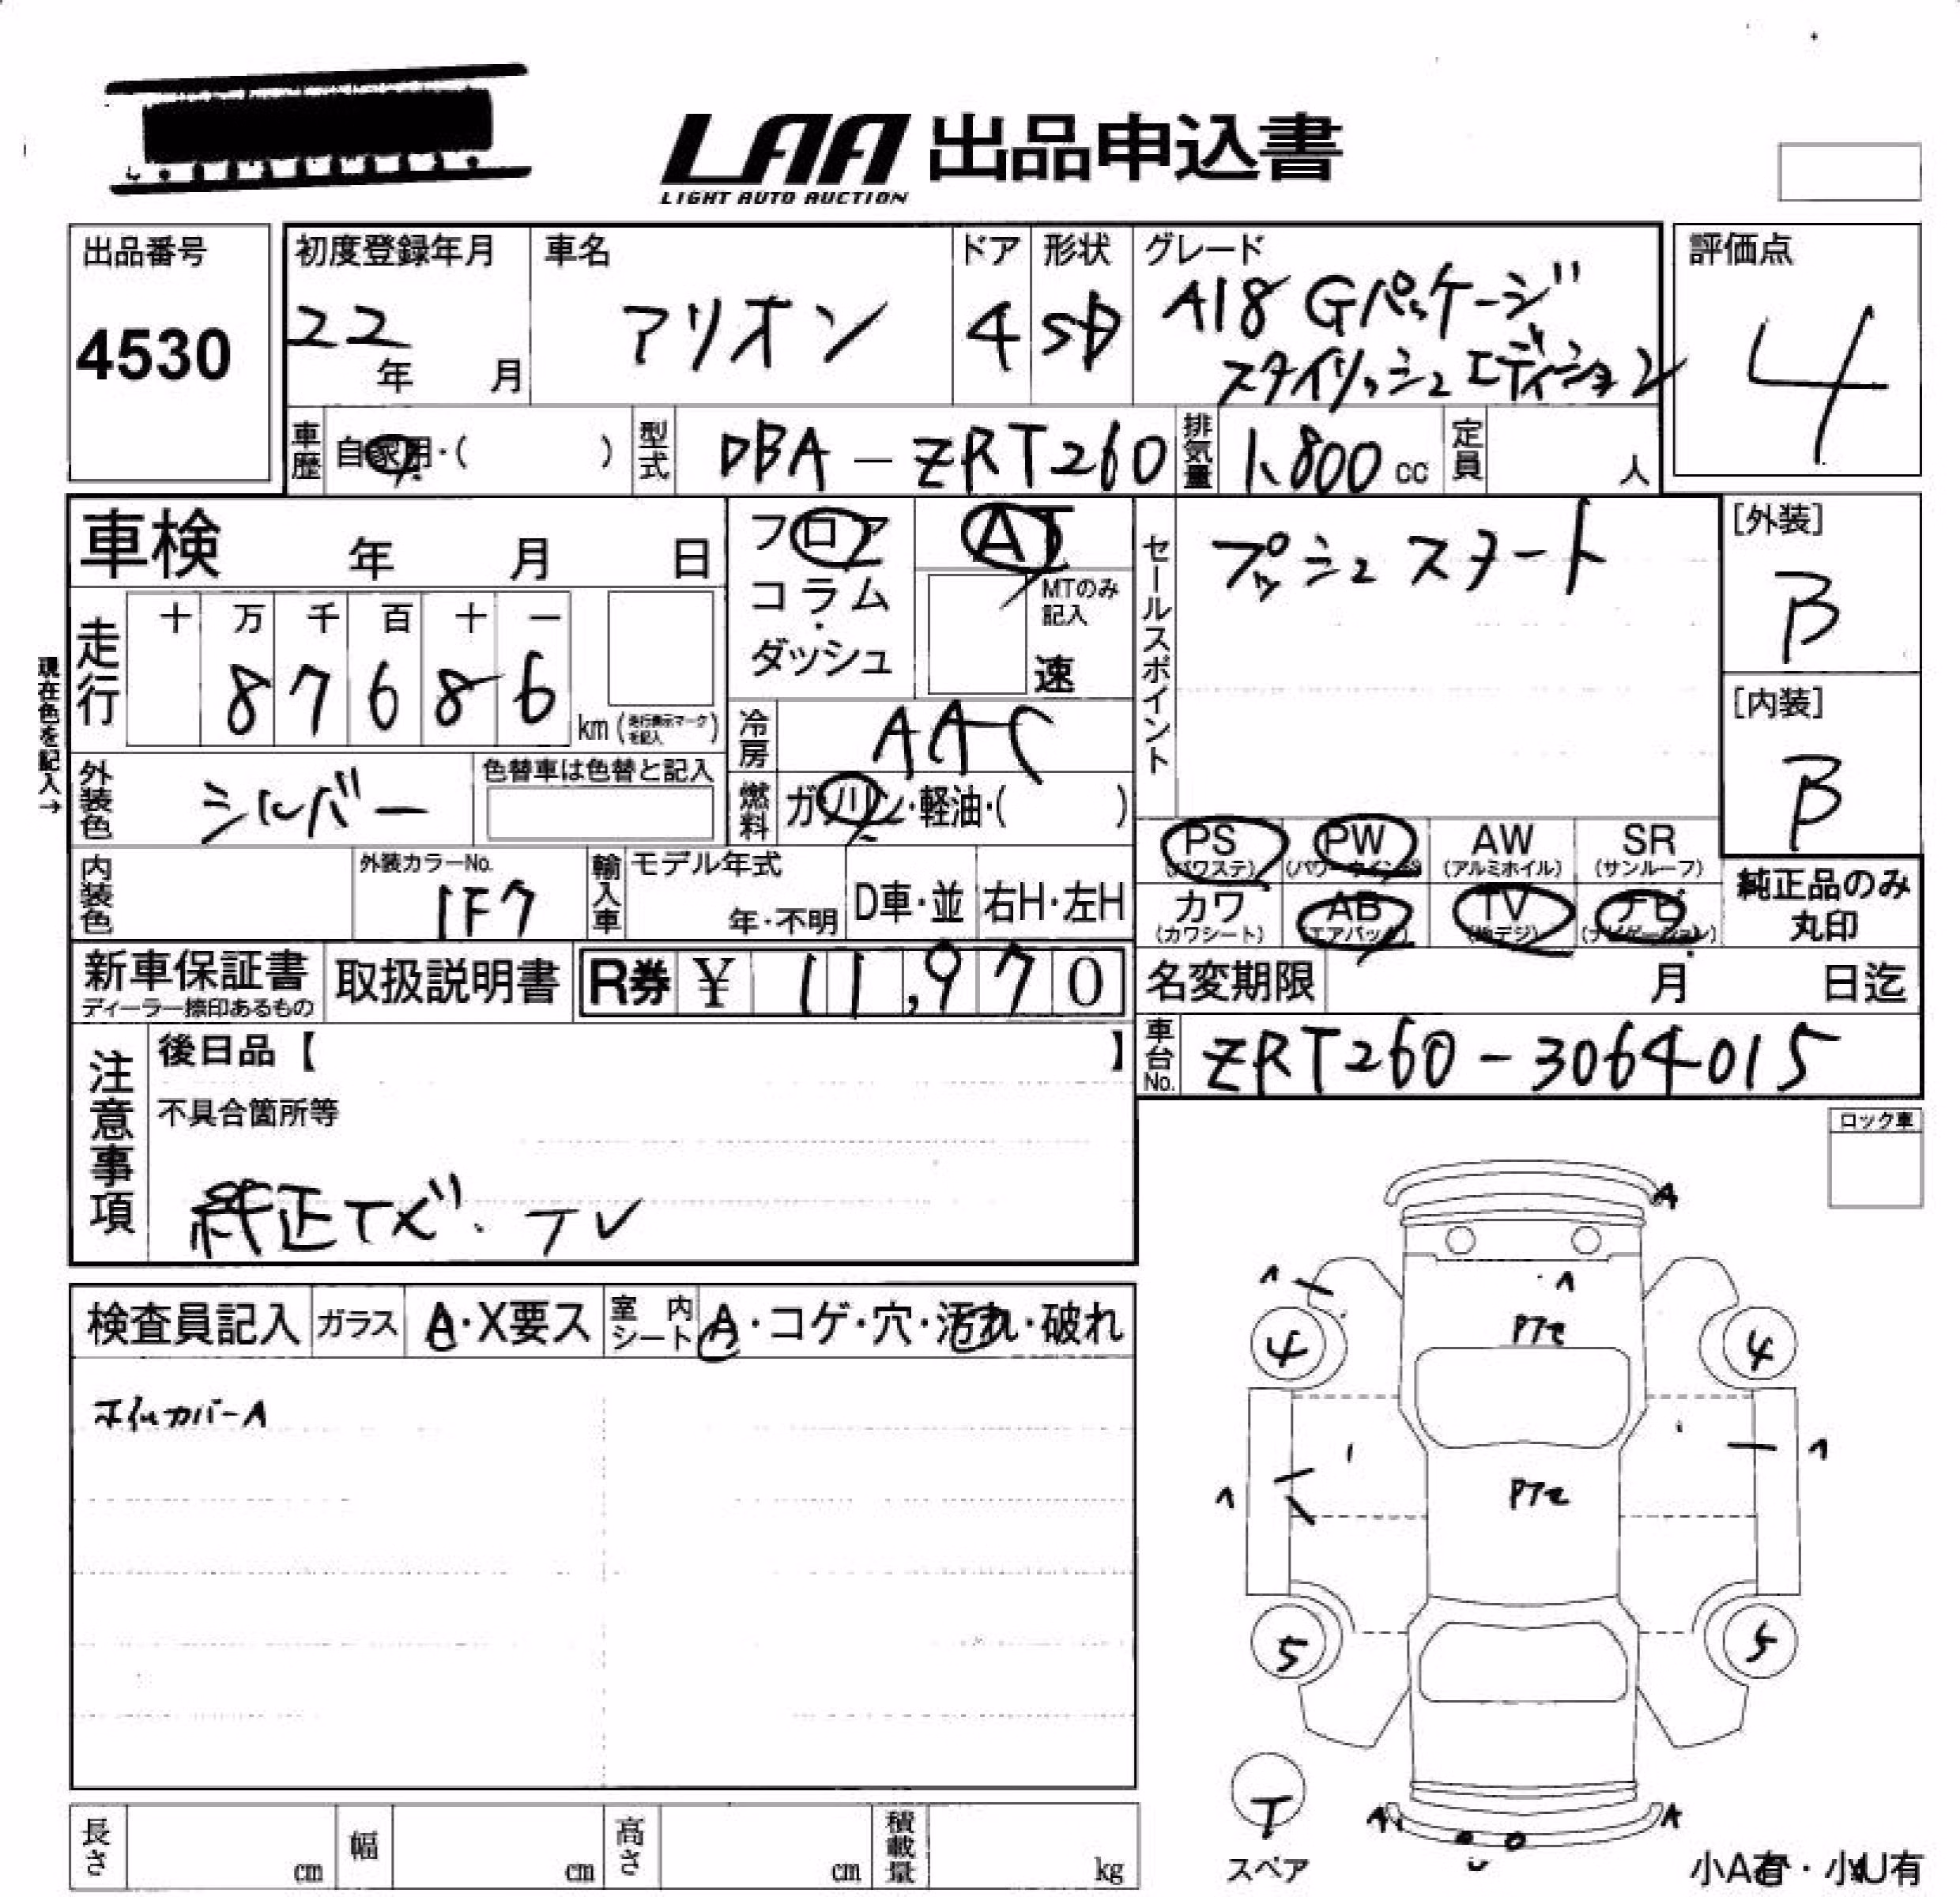 LAA 出品申込書
LIGHT AUTO AUCTION
出品番号
4530
初度登録年月
22
年 月
車名
アリオン
ドア
4
形状
SD
グレード
A18 Gパッケージ
スタイリッシュエディション
評価点
4
車歴
自家用・( )
型式
DBA-ZRT260
排気量
1,800 cc
定員
人
車検 年 月 日
フロア
コラム
ダッシュ
AT
MTのみ
記入
速
セールスポイント
プッシュスタート
[外装]
B
[内装]
B
現在色を記入→
走行
十 万 千 百 十 一
8 7 6 8 6
km (走行表示マークを記入)
冷房
AAC
燃料
ガソリン・軽油・( )
外装色
シルバー
色替車は色替と記入
PS
(パワステ)
PW
(パワーウインドウ)
AW
(アルミホイル)
SR
(サンルーフ)
カワ
(カワシート)
AB
(エアバック)
TV
(地デジ)
ナビ
(ナビゲーション)
純正品のみ
丸印
内装色
外装カラーNo.
1F7
輸入車
モデル年式
年・不明
D車・並
右H・左H
新車保証書
ディーラー捺印あるもの
取扱説明書
R券 ¥ 11,970
名変期限 月 日迄
車台No.
ZRT260-3064015
注意事項
後日品【 】
不具合箇所等
純正ナビ・TV
ロック車
検査員記入
ガラス
A・X要ス
室内シート
A・コゲ・穴・汚れ・破れ
ホイルカバーA
A
4
4
5
5
T
スペア
A
A
小A有・小U有
長さ
cm
幅
cm
高さ
cm
積載量
kg